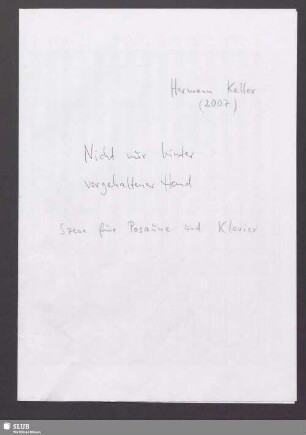 Hermann Keller
(2007)
Nicht nur hinter
vorgehaltener Hand
Szene für Posaune und Klavier
SLUB
Wir führen Wissen.